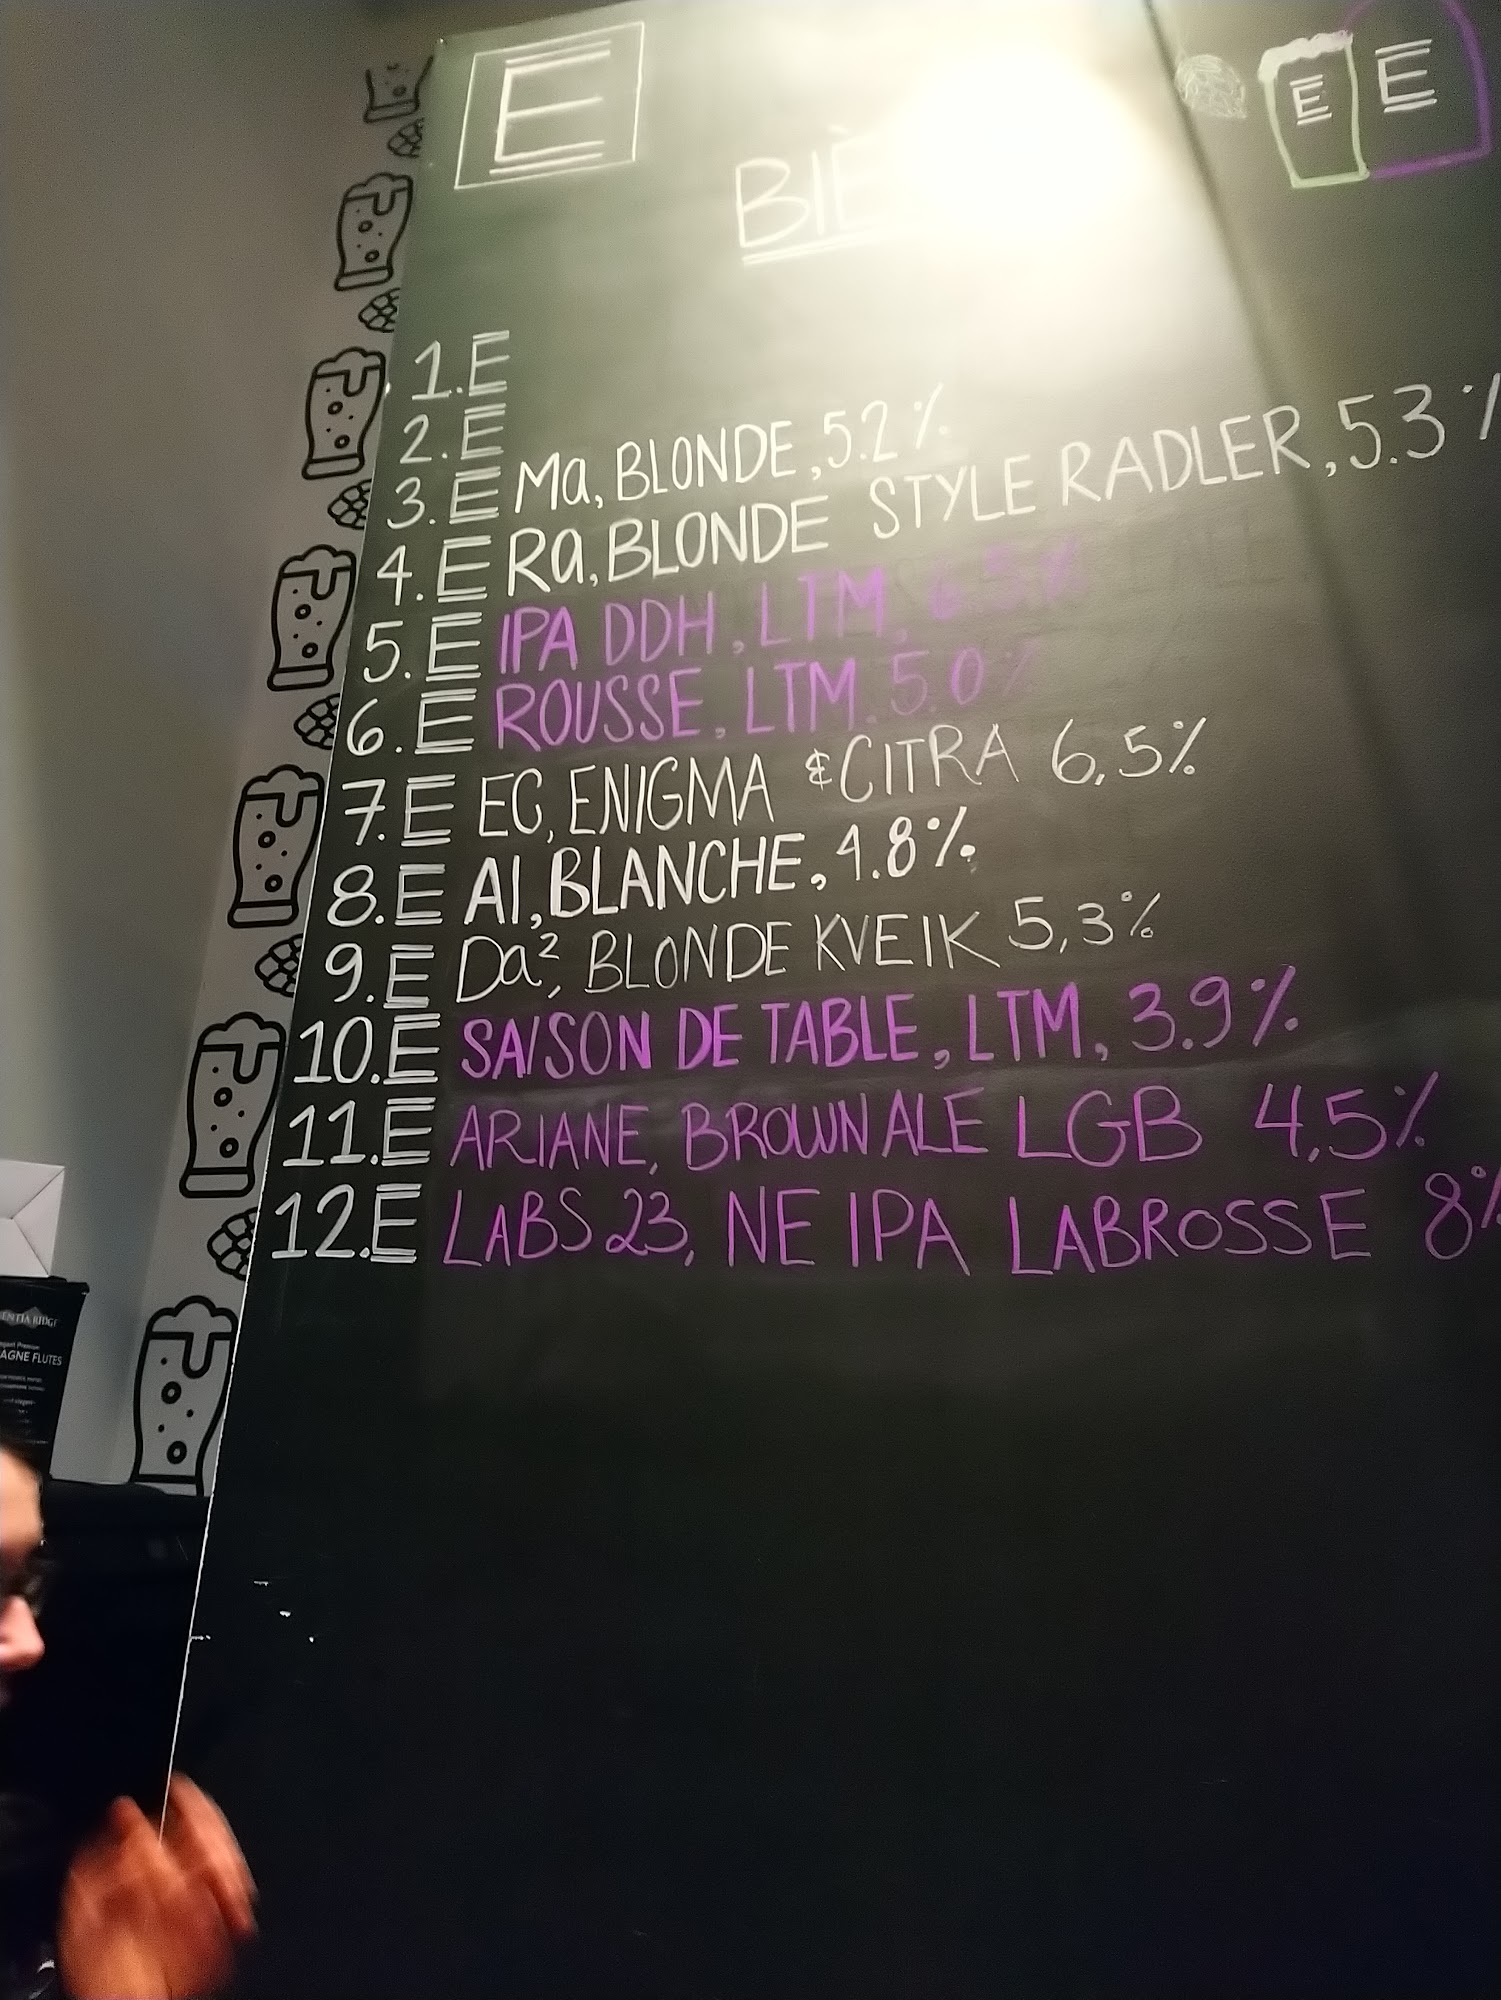 E
E E
BIÈ
1. E
2. E
3. E Ma, BLONDE, 5.2%
4. E Ra, BLONDE STYLE RADLER, 5.3%
5. E IPA DDH, LTM, 6.5%
6. E ROUSSE, LTM, 5.0%
7. E EC, ENIGMA & CITRA 6,5%
8. E Al, BLANCHE, 4.8%
9. E Da², BLONDE KVEIK 5,3%
10. E SAISON DE TABLE, LTM, 3.9%
11. E ARIANE, BROWN ALE LGB 4,5%
12. E LABS 23, NE IPA LABROSSE 8%
ENTIA RIDGE
AGNE FLUTES